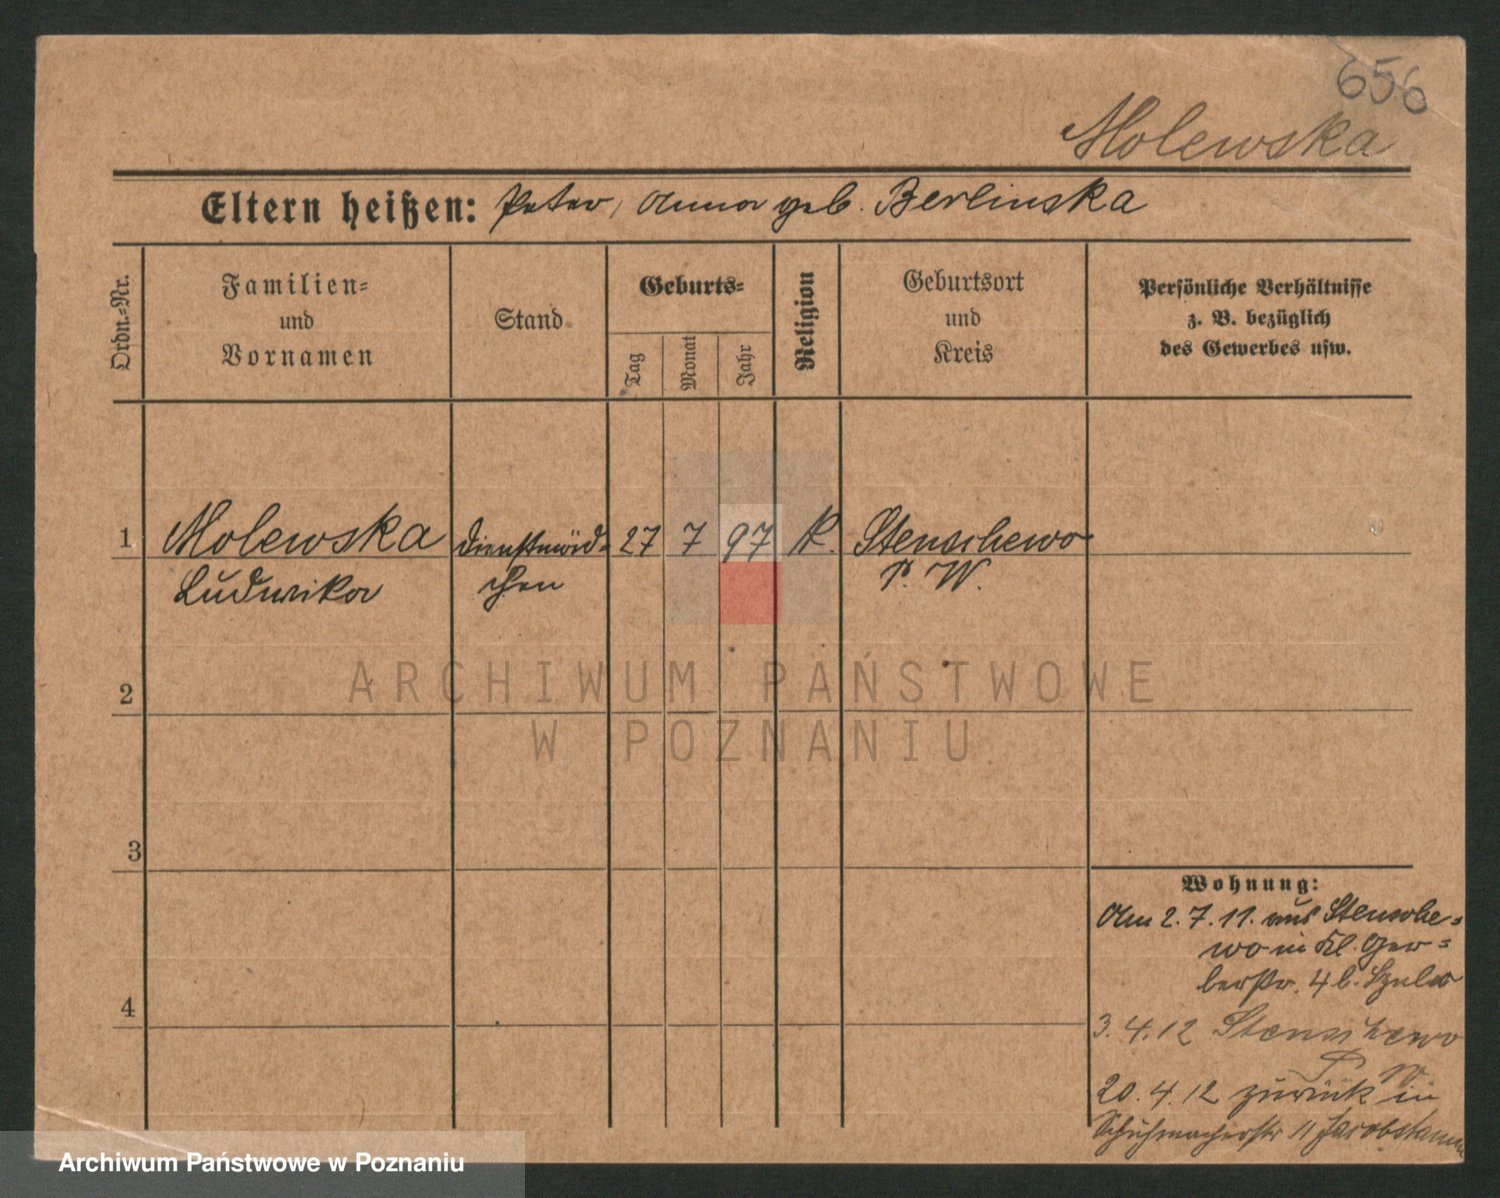 656
Molewska
Eltern heißen: Peter, Anna geb. Berlinska
Ordn.-Nr.
Familien-
und
Vornamen
Stand
Geburts-
Tag
Monat
Jahr
Religion
Geburtsort
und
Kreis
Persönliche Verhältnisse
z. B. bezüglich
des Gewerbes usw.
1 Molewska Dienstmäd- 27 7 97 K. Stenschewo
Ludwika chen P. W.
2
3
4
Wohnung:
Am 2.7.11. aus Stensche-
wo in Kl. Ger-
berstr. 4 b. Szulc
3.4.12 Stenschewo
P W
20.4.12 zurück in
Schuhmacherstr 11
ARCHIWUM PAŃSTWOWE
W POZNANIU
Archiwum Państwowe w Poznaniu